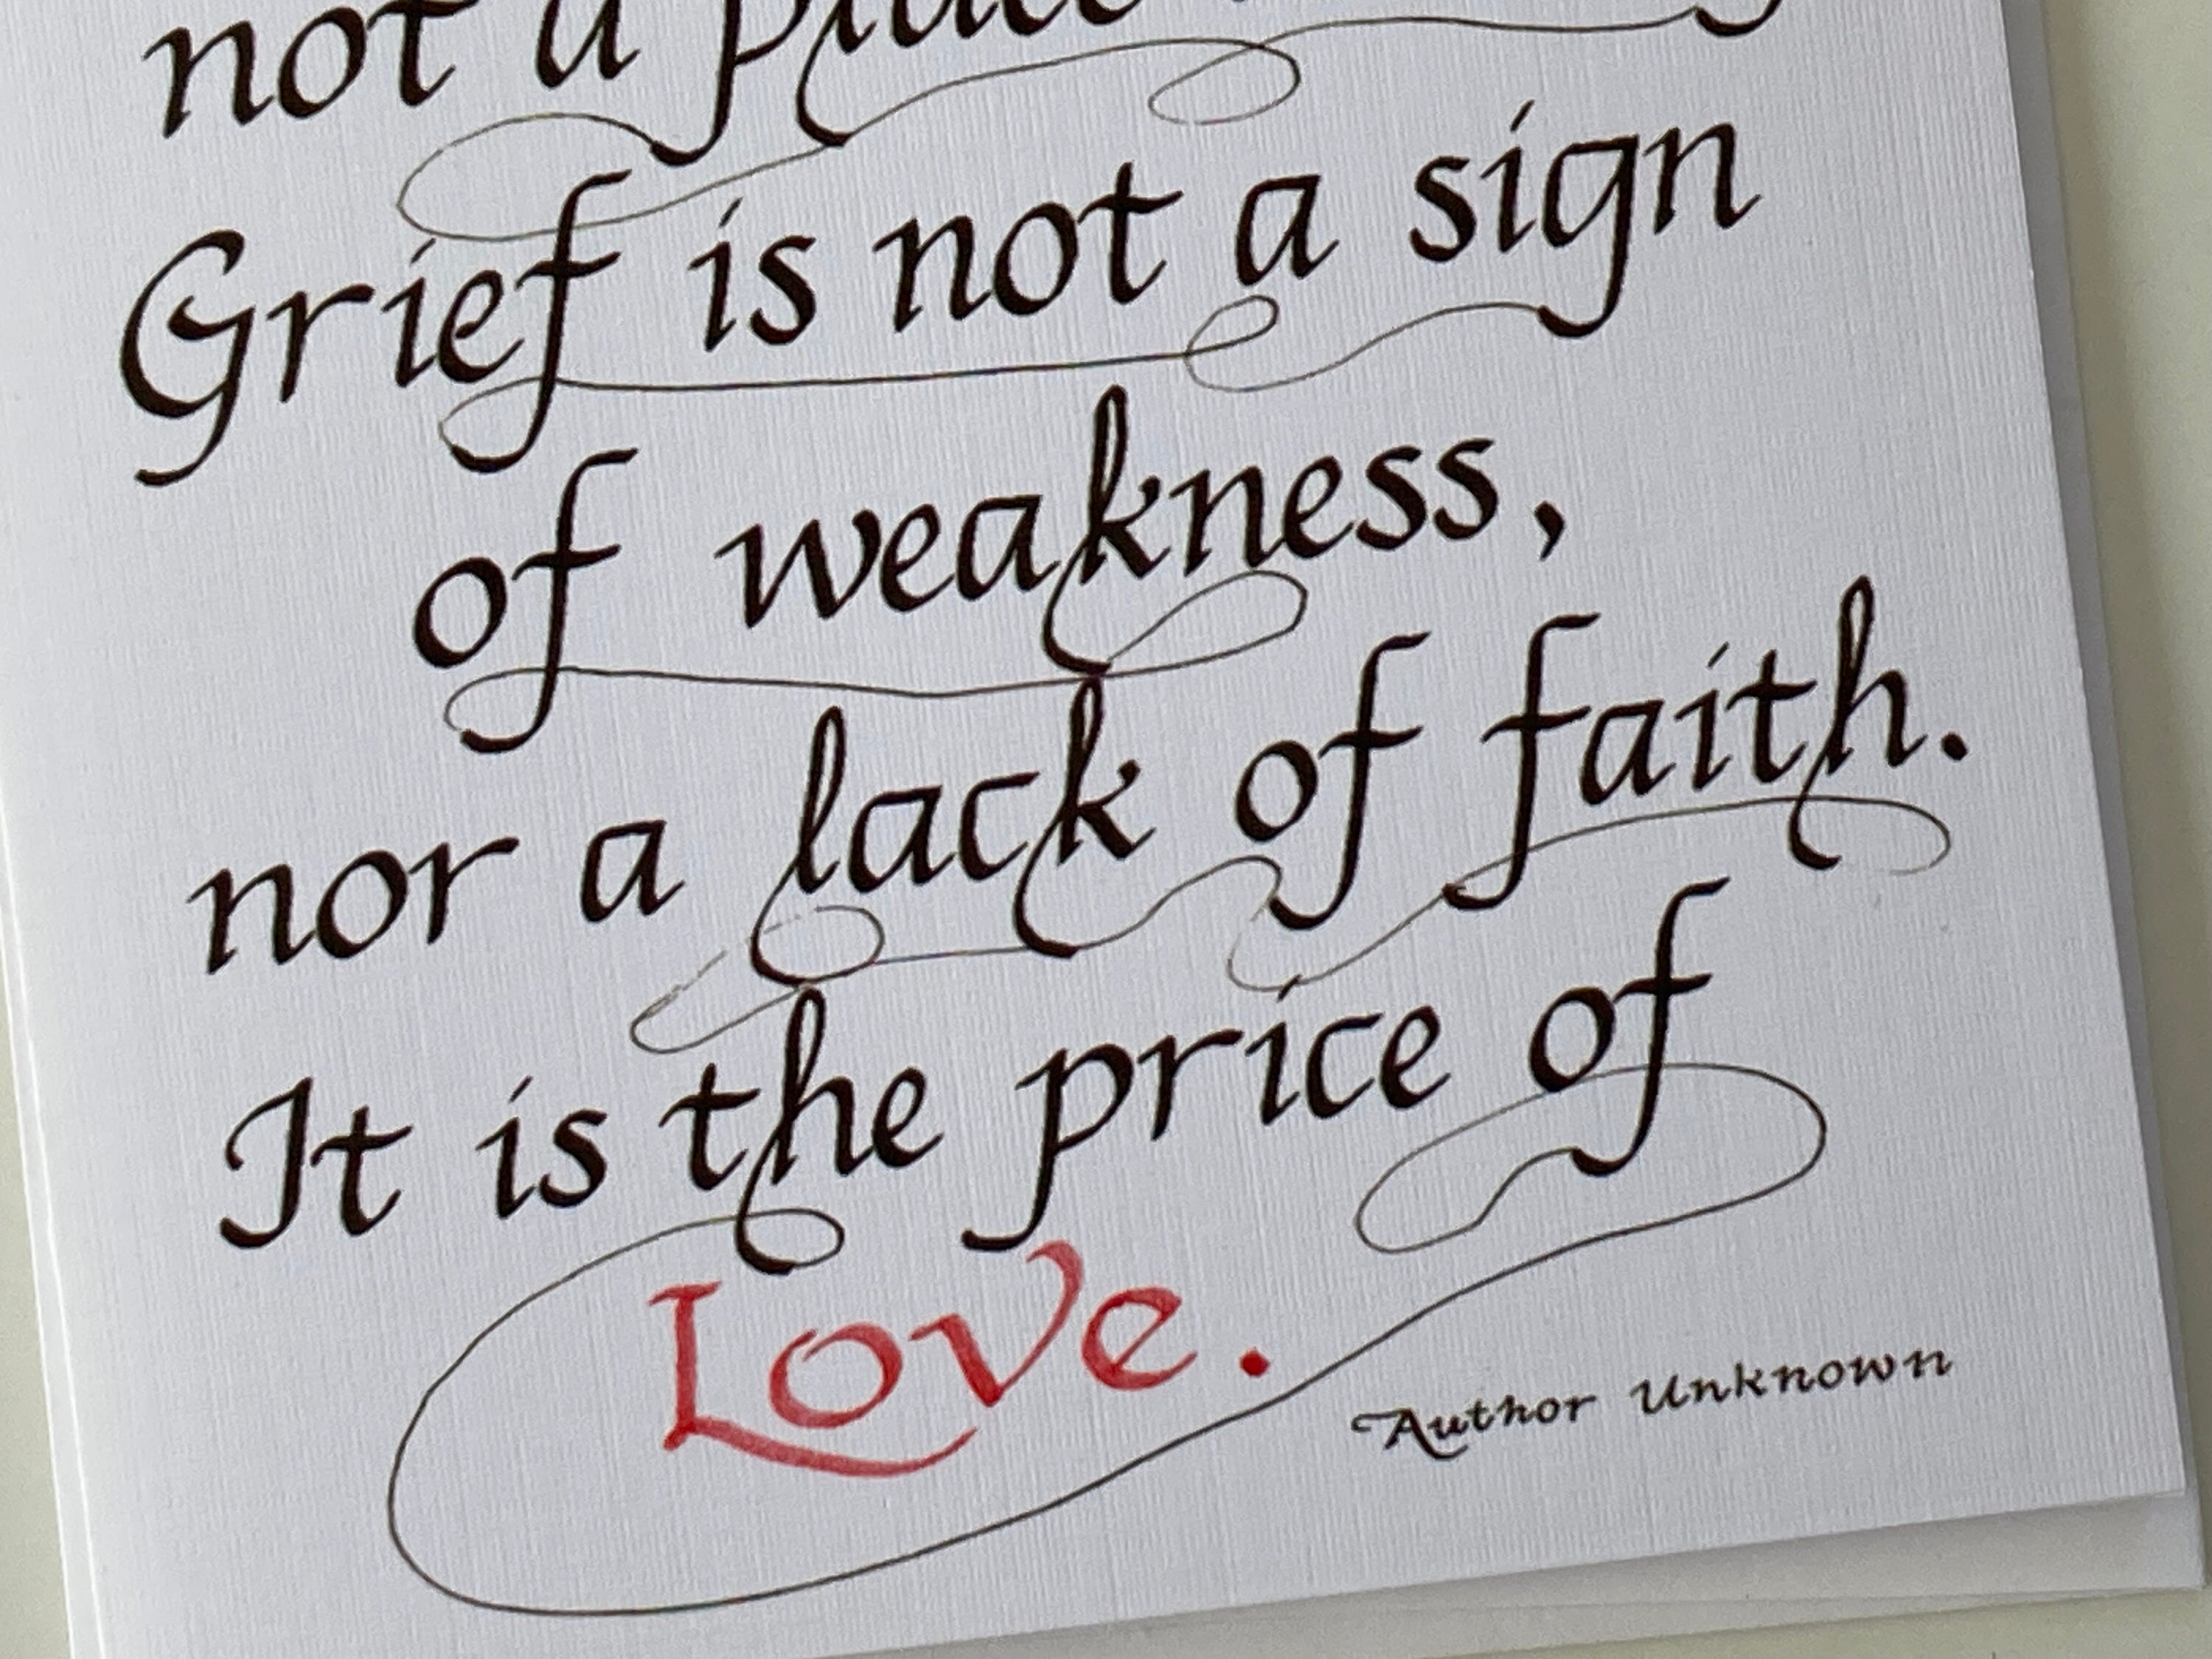 not a place
Grief is not a sign
of weakness,
nor a lack of faith.
It is the price of
Love.
Author Unknown